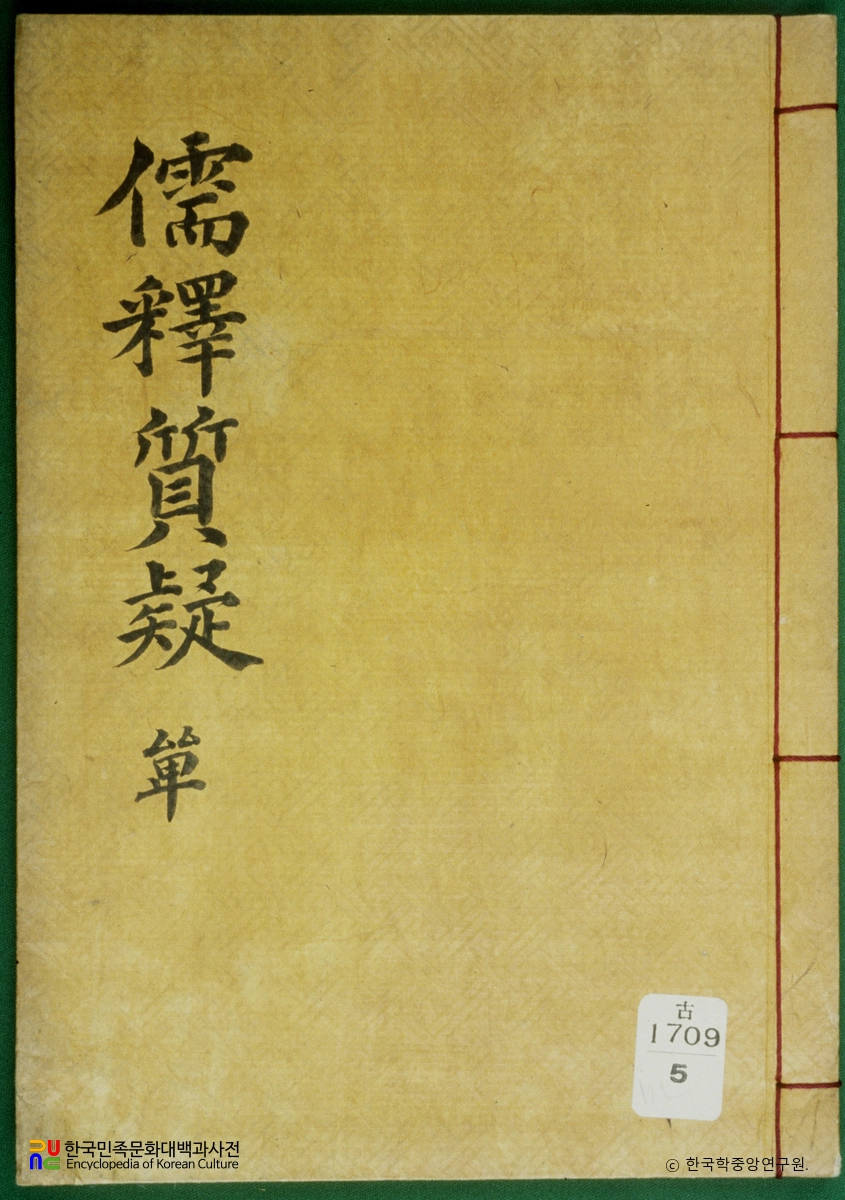 儒釋質疑 單
古
1709
5
한국민족문화대백과사전
Encyclopedia of Korean Culture
© 한국학중앙연구원.